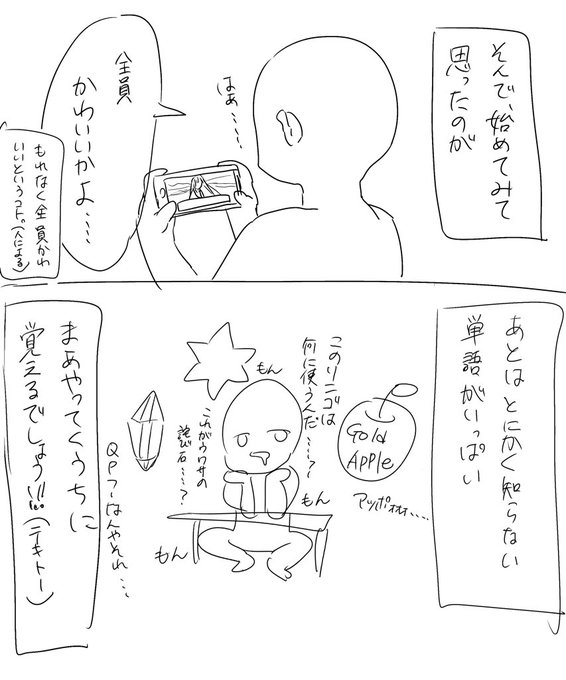 そんで、始めてみて
思ったのが
はぁ……
全員
かわいいかよ……
もれなく全員かわ
いいというコト。(人による)
あとは とにかく知らない
単語がいっぱい
Gold
APPLE
アッポォォォ....
このリンゴは
何に使うんだ……?
もん
これがウワサの
詫び石……?
もん
もん
QPフーなんやそれ…
まあやってくうちに
覚えるでしょう!!!(テキトー)